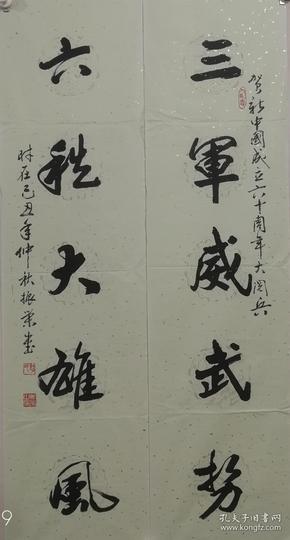 贺新中國成立六十周年大阅兵
三軍威武势
六秩大雄風
时在己丑年仲秋振業书
孔夫子旧书网
9